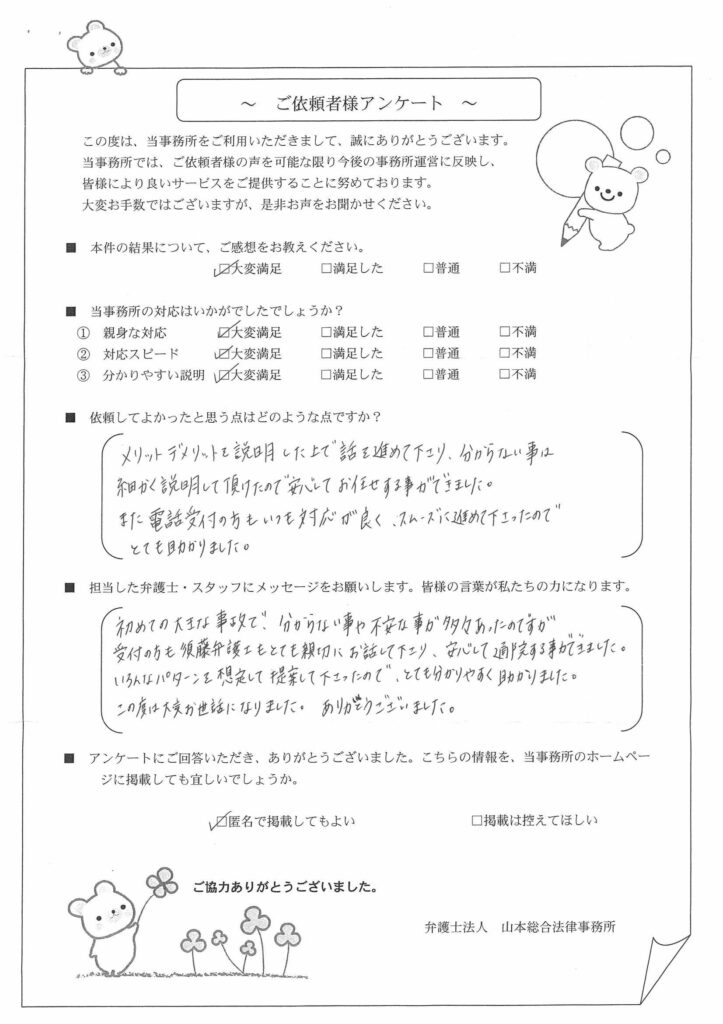 ～ ご依頼者様アンケート ～
この度は、当事務所をご利用いただきまして、誠にありがとうございます。
当事務所では、ご依頼者様の声を可能な限り今後の事務所運営に反映し、
皆様により良いサービスをご提供することに努めております。
大変お手数ではございますが、是非お声をお聞かせください。
■ 本件の結果について、ご感想をお教えください。
☑大変満足 □満足した □普通 □不満
■ 当事務所の対応はいかがでしたでしょうか？
① 親身な対応 ☑大変満足 □満足した □普通 □不満
② 対応スピード ☑大変満足 □満足した □普通 □不満
③ 分かりやすい説明 ☑大変満足 □満足した □普通 □不満
■ 依頼してよかったと思う点はどのような点ですか？
メリットデメリットを説明した上で話を進めて下さり、分からない事は
細かく説明して頂けたので安心してお任せする事ができました。
また電話受付の方もいつも対応が良く、スムーズに進めて下さったので
とても助かりました。
■ 担当した弁護士・スタッフにメッセージをお願いします。皆様の言葉が私たちの力になります。
初めての大きな事故で、分からない事や不安な事が多々あったのですが
受付の方も須藤弁護士もとても親切にお話して下さり、安心して通院する事ができました。
いろんなパターンを想定して提案して下さったので、とても分かりやすく助かりました。
この度は大変お世話になりました。 ありがとうございました。
■ アンケートにご回答いただき、ありがとうございました。こちらの情報を、当事務所のホームペー
ジに掲載しても宜しいでしょうか。
☑匿名で掲載してもよい □掲載は控えてほしい
ご協力ありがとうございました。
弁護士法人 山本総合法律事務所